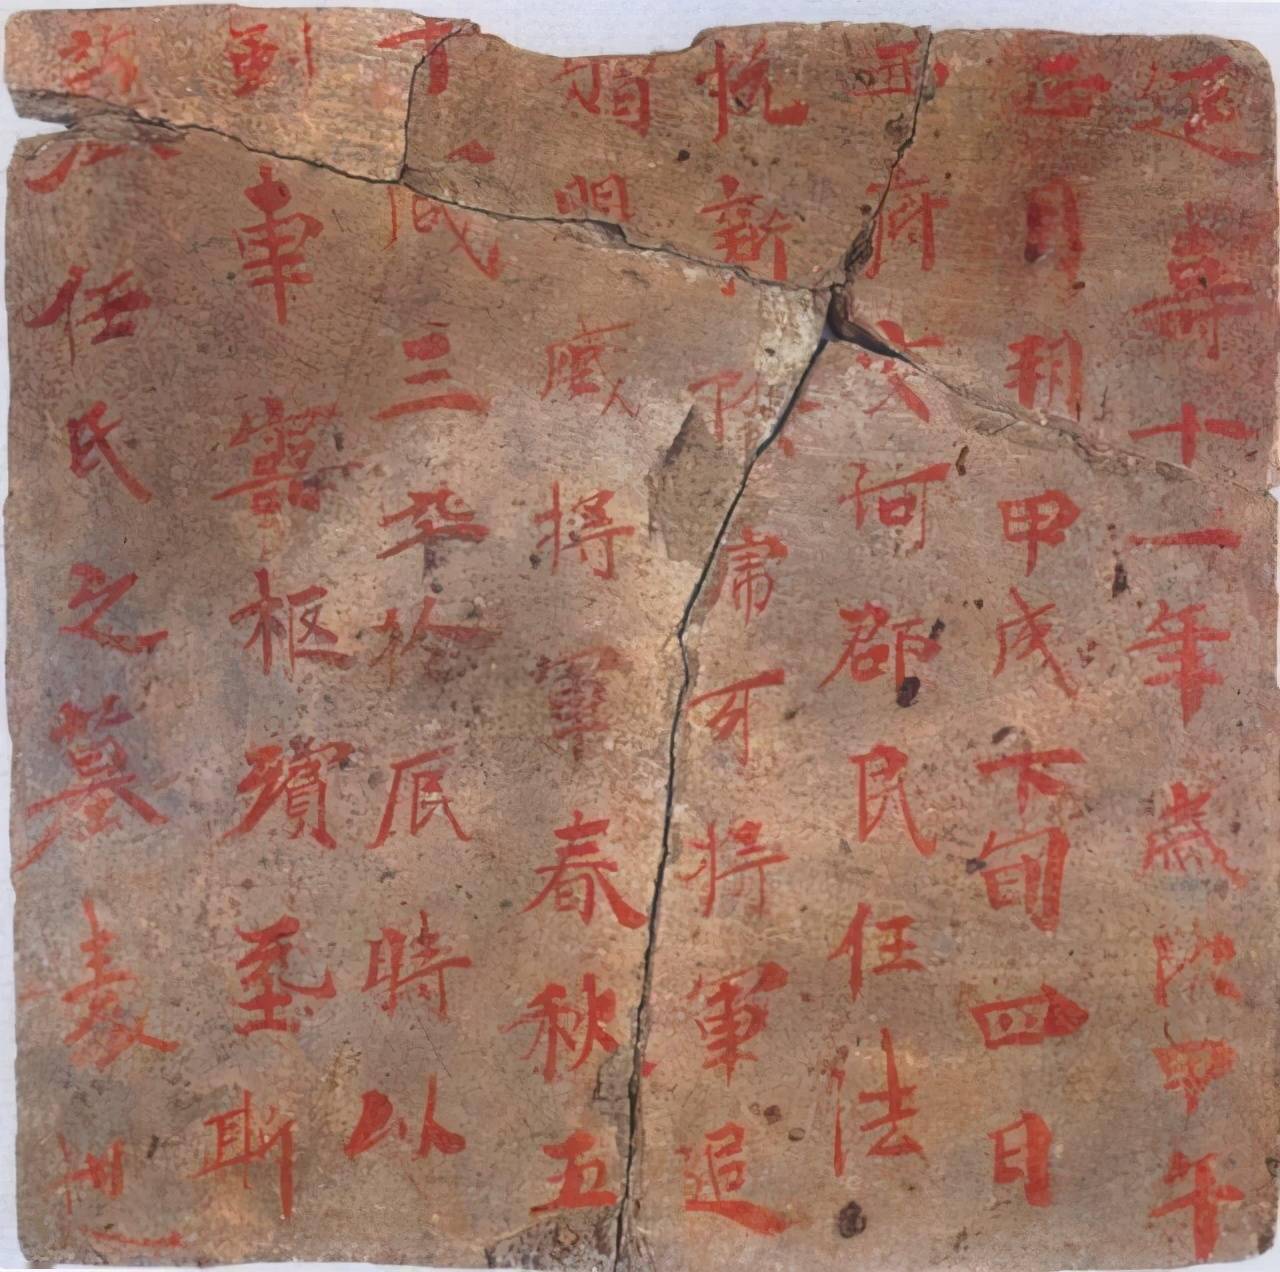 延壽十一年歲次甲午
正月朔甲戌下旬四日
西府交河郡民任法
悅新除虎牙將軍追
贈明威將軍春秋五
十咸三卒於辰時以
車靈柩殯斯
任氏之墓表也